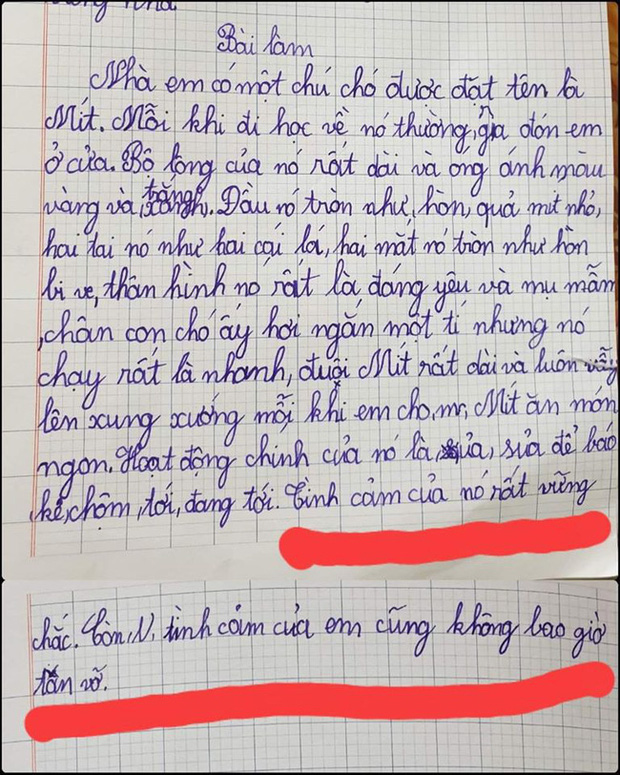 Bài làm
Nhà em có một chú chó được đặt tên là
Mít. Mỗi khi đi học về nó thường, ra đón em
ở cửa. Bộ lông của nó rất dài và óng ánh màu
vàng và, trắng. Đầu nó tròn như, hòn, quả mít nhỏ,
hai tai nó như hai cái lá, hai mắt nó tròn như hòn
bi ve, thân hình nó rất là đáng yêu và mụ mẫm
, chân con chó ấy hơi ngắn một tí nhưng nó
chạy rất là nhanh, đuôi Mít rất dài và luôn vẫy
lên xung xướng mỗi khi em cho, mr, Mít ăn món
ngon. Hoạt động chính của nó là, sủa, sủa để báo
kẻ, chộm, tới, đang tới. Tình cảm của nó rất vững
chắc. Còn, tình cảm của em cũng không bao giờ
tan vỡ.